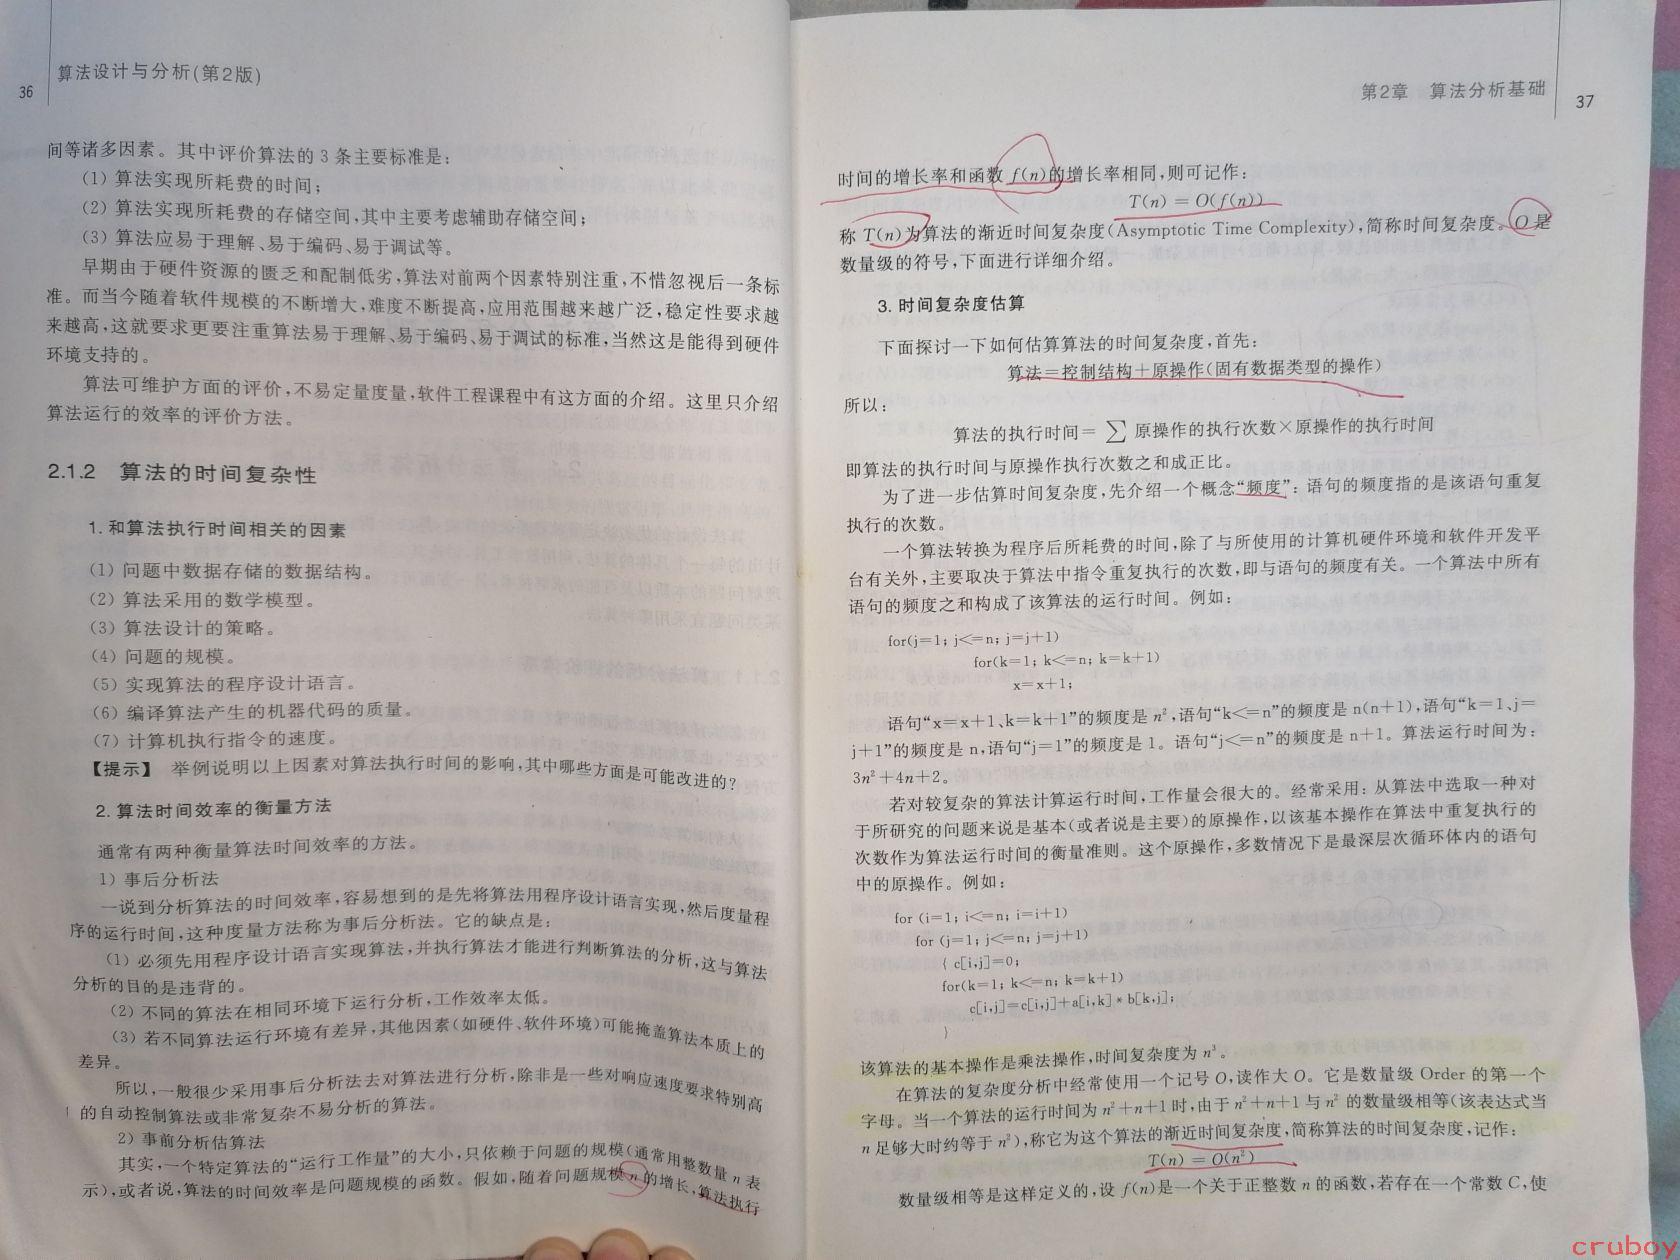 36
算法设计与分析(第2版)
间等诸多因素。其中评价算法的3条主要标准是:
(1) 算法实现所耗费的时间;
(2) 算法实现所耗费的存储空间,其中主要考虑辅助存储空间;
(3) 算法应易于理解、易于编码、易于调试等。
早期由于硬件资源的匮乏和配制低劣,算法对前两个因素特别注重,不惜忽视后一条标
准。而当今随着软件规模的不断增大,难度不断提高,应用范围越来越广泛,稳定性要求越
来越高,这就要求更要注重算法易于理解、易于编码、易于调试的标准,当然这是能得到硬件
环境支持的。
算法可维护方面的评价,不易定量度量,软件工程课程中有这方面的介绍。这里只介绍
算法运行的效率的评价方法。
2.1.2 算法的时间复杂性
1. 和算法执行时间相关的因素
(1) 问题中数据存储的数据结构。
(2) 算法采用的数学模型。
(3) 算法设计的策略。
(4) 问题的规模。
(5) 实现算法的程序设计语言。
(6) 编译算法产生的机器代码的质量。
(7) 计算机执行指令的速度。
【提示】 举例说明以上因素对算法执行时间的影响,其中哪些方面是可能改进的?
2. 算法时间效率的衡量方法
通常有两种衡量算法时间效率的方法。
1) 事后分析法
一说到分析算法的时间效率,容易想到的是先将算法用程序设计语言实现,然后度量程
序的运行时间,这种度量方法称为事后分析法。它的缺点是:
(1) 必须先用程序设计语言实现算法,并执行算法才能进行判断算法的分析,这与算法
分析的目的是违背的。
(2) 不同的算法在相同环境下运行分析,工作效率太低。
(3) 若不同算法运行环境有差异,其他因素(如硬件、软件环境)可能掩盖算法本质上的
差异。
所以,一般很少采用事后分析法去对算法进行分析,除非是一些对响应速度要求特别高
的自动控制算法或非常复杂不易分析的算法。
2) 事前分析估算法
其实,一个特定算法的“运行工作量”的大小,只依赖于问题的规模(通常用整数量 n 表
示),或者说,算法的时间效率是问题规模的函数。假如,随着问题规模 n 的增长,算法执行
第2章 算法分析基础
37
时间的增长率和函数 f(n)的增长率相同,则可记作:
T(n) = O(f(n))
称 T(n)为算法的渐近时间复杂度(Asymptotic Time Complexity),简称时间复杂度。O 是
数量级的符号,下面进行详细介绍。
3. 时间复杂度估算
下面探讨一下如何估算算法的时间复杂度,首先:
算法=控制结构+原操作(固有数据类型的操作)
所以:
算法的执行时间= ∑ 原操作的执行次数×原操作的执行时间
即算法的执行时间与原操作执行次数之和成正比。
为了进一步估算时间复杂度,先介绍一个概念“频度”: 语句的频度指的是该语句重复
执行的次数。
一个算法转换为程序后所耗费的时间,除了与所使用的计算机硬件环境和软件开发平
台有关外,主要取决于算法中指令重复执行的次数,即与语句的频度有关。一个算法中所有
语句的频度之和构成了该算法的运行时间。例如:
for(j=1; j<=n; j=j+1)
for(k=1; k<=n; k=k+1)
x=x+1;
语句“x=x+1、k=k+1”的频度是 n²,语句“k<=n”的频度是 n(n+1),语句“k=1、j=
j+1”的频度是 n,语句“j=1”的频度是 1。语句“j<=n”的频度是 n+1。算法运行时间为:
3n²+4n+2。
若对较复杂的算法计算运行时间,工作量会很大的。经常采用: 从算法中选取一种对
于所研究的问题来说是基本(或者说是主要)的原操作,以该基本操作在算法中重复执行的
次数作为算法运行时间的衡量准则。这个原操作,多数情况下是最深层次循环体内的语句
中的原操作。例如:
for (i=1; i<=n; i=i+1)
for (j=1; j<=n; j=j+1)
{ c[i,j]=0;
for(k=1; k<=n; k=k+1)
c[i,j]=c[i,j]+a[i,k] * b[k,j];
}
该算法的基本操作是乘法操作,时间复杂度为 n³。
在算法的复杂度分析中经常使用一个记号 O,读作大 O。它是数量级 Order 的第一个
字母。当一个算法的运行时间为 n²+n+1 时,由于 n²+n+1 与 n² 的数量级相等(该表达式当
n 足够大时约等于 n²),称它为这个算法的渐近时间复杂度,简称算法的时间复杂度,记作:
T(n) = O(n²)
数量级相等是这样定义的,设 f(n)是一个关于正整数 n 的函数,若存在一个常数 C,使
cruboy